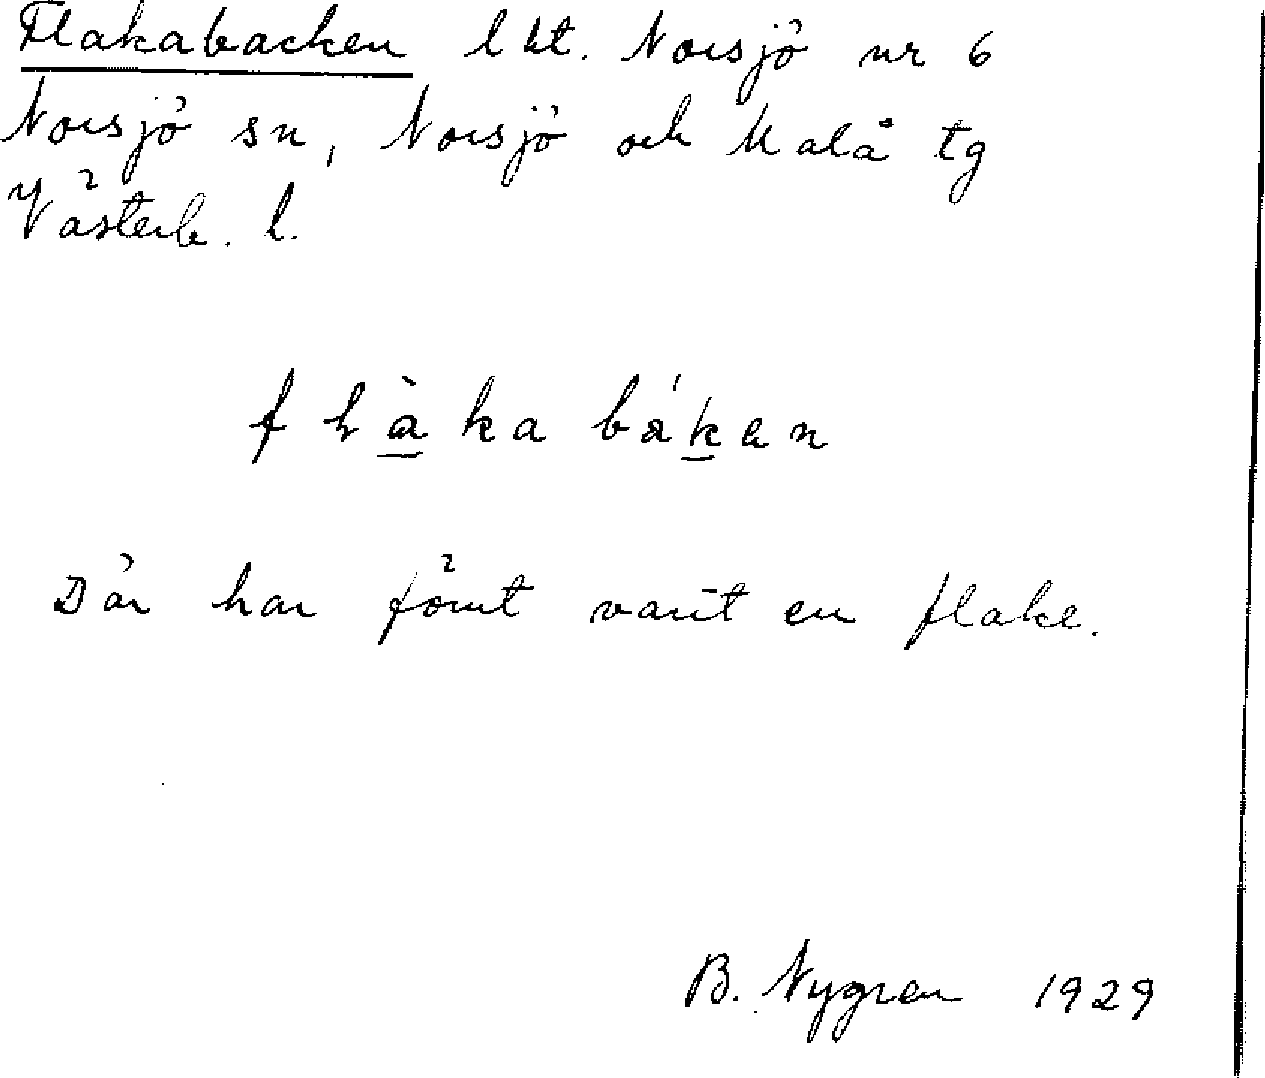 Flakabacken lkt. Norsjö nr 6
Norsjö sn, Norsjö och Malå tg
Västerb. l.
Där har förut varit en flake.
B. Nygren 1929